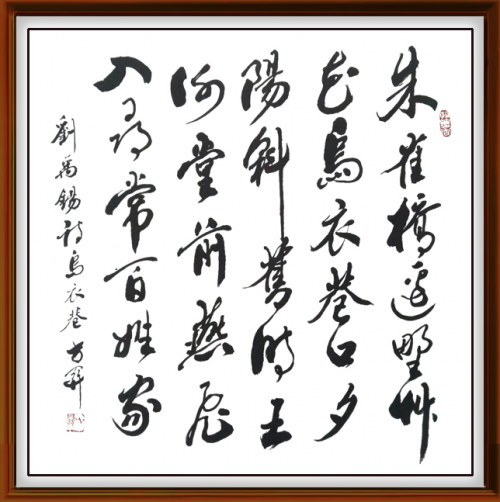 朱雀橋邊野艸
花烏衣巷口夕
陽斜舊時王
謝堂前燕飛
入尋常百姓家
劉禹錫詩烏衣巷